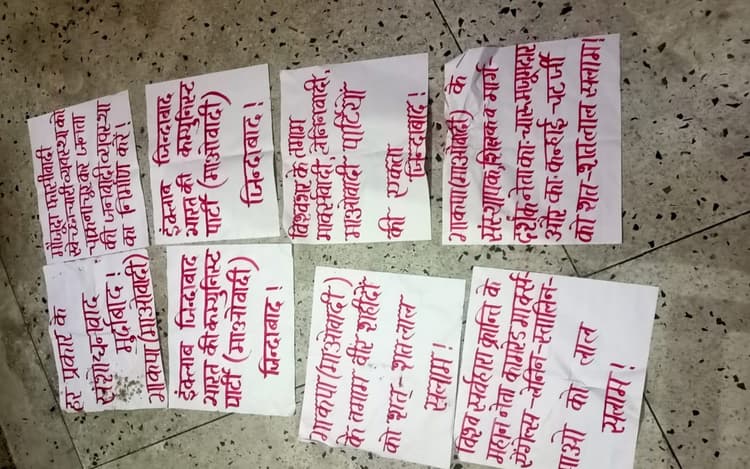 मौजूदा फासीवादी
को
चकनाचूर कर जनता
की जनवादी व्यवस्था
का निर्माण करें!
इंक्लाब जिन्दाबाद
भारत की कम्युनिस्ट
पार्टी (माओवादी)
जिन्दाबाद!
विश्वभर के तमाम
मार्क्सवादी, लेनिनवादी,
माओवादी पार्टियों
की एकता
जिन्दाबाद!
भाकपा (माओवादी) के
संस्थापक, शिक्षक व मार्ग-
दर्शक नेता का. चारू मजूमदार
और का. कन्हाई चटर्जी
को शत-शत लाल सलाम!
हर प्रकार के
संशोधनवाद
मुर्दाबाद!
भाकपा (माओवादी)
इंक्लाब जिन्दाबाद
भारत की कम्युनिस्ट
पार्टी (माओवादी)
जिन्दाबाद!
भाकपा (माओवादी)
के तमाम वीर शहीदों
को शत-शत लाल
सलाम!
विश्व सर्वहारा क्रान्ति के
महान नेता कामरेड मार्क्स-
एंगेल्स-लेनिन-स्तालिन-
माओ को लाल
सलाम!